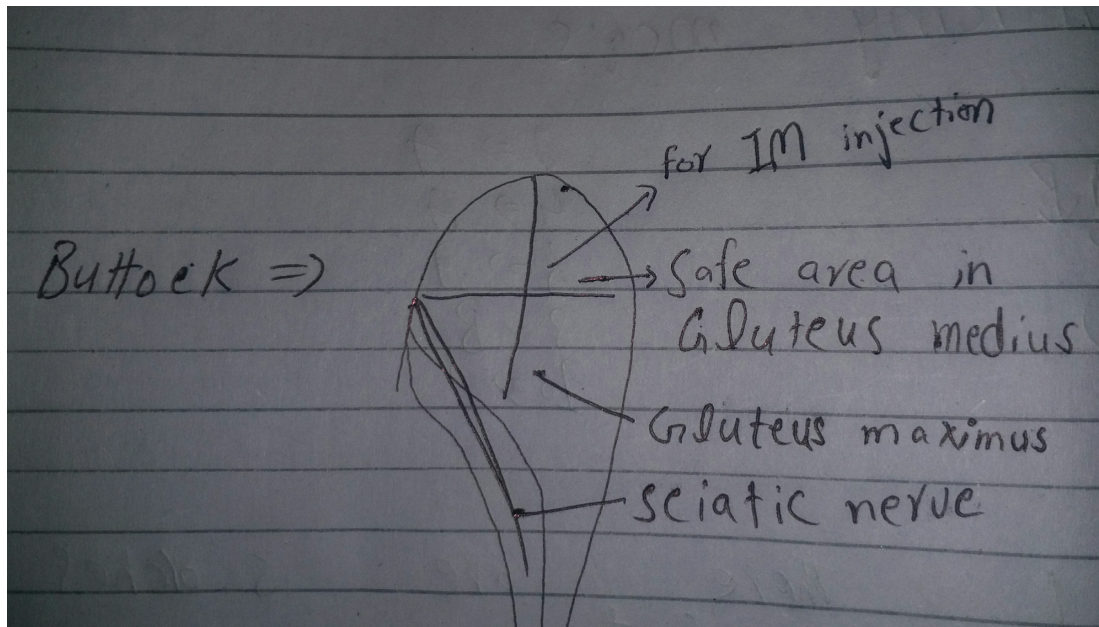 for IM injection
Buttock => Safe area in
Gluteus medius
Gluteus maximus
Sciatic nerve